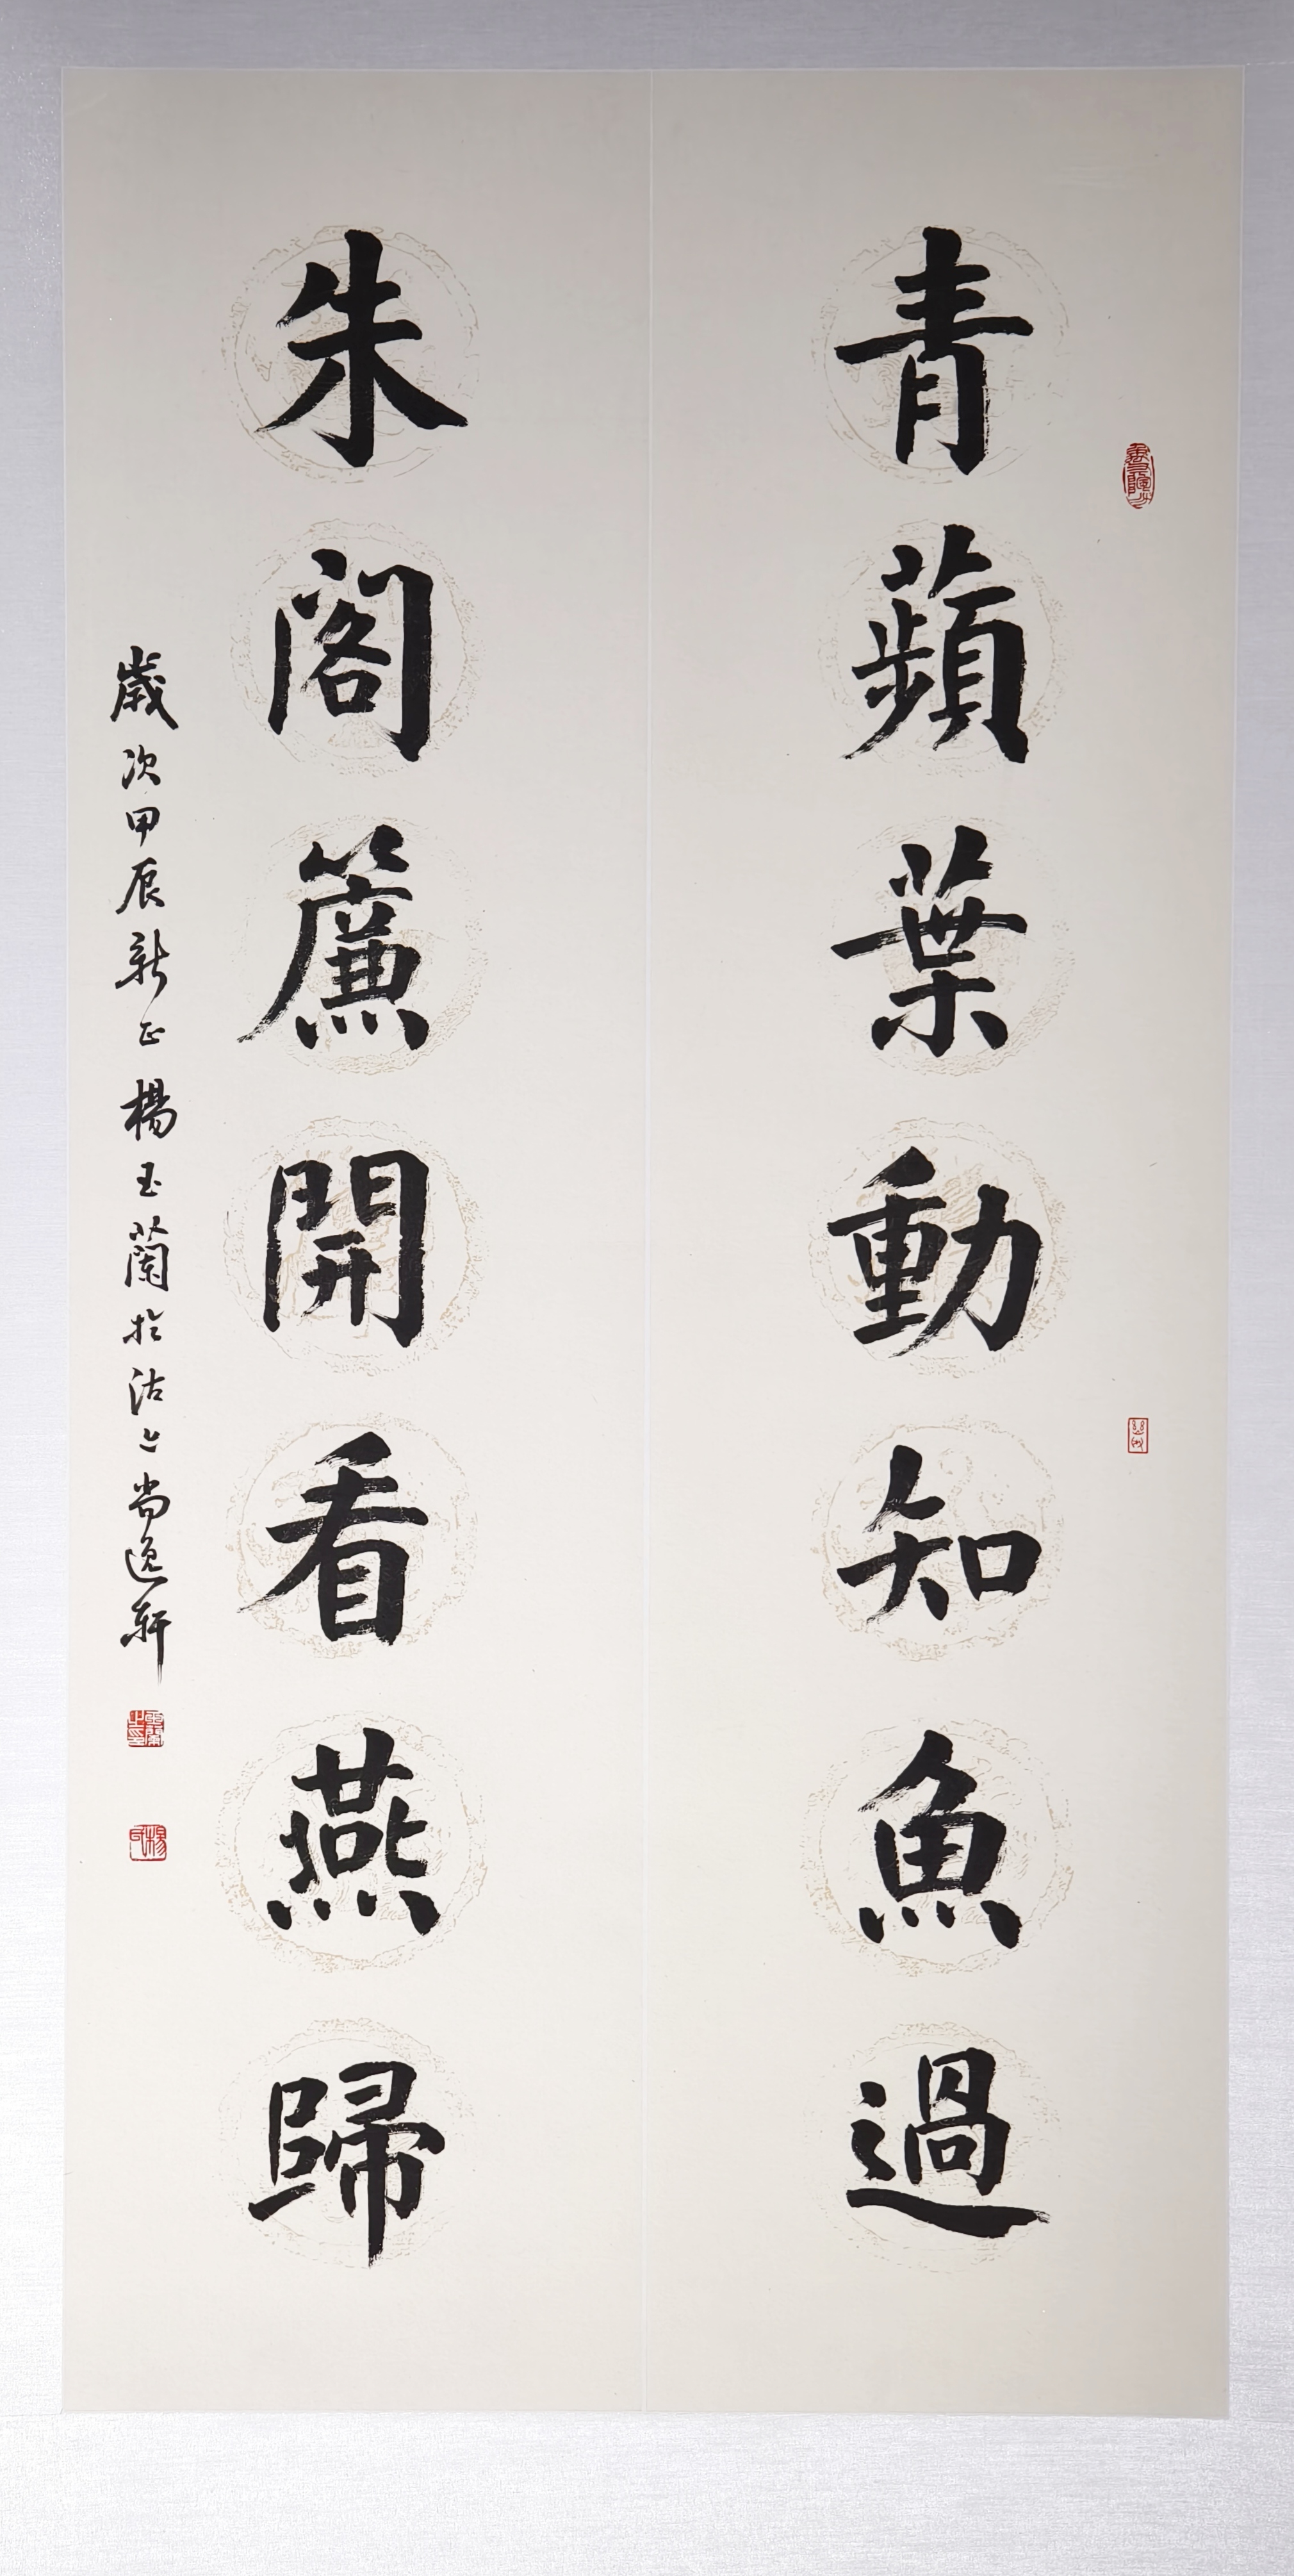 青蘋葉動知魚過
朱阁簾開看燕歸
歲次甲辰新正楊玉蘭於沽上尚逸軒